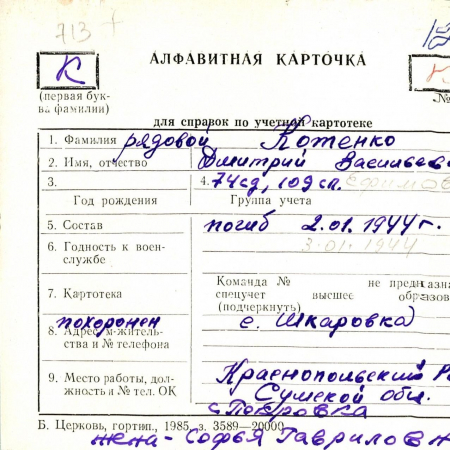 713 +
К
АЛФАВИТНАЯ КАРТОЧКА
(первая бук-
ва фамилии)
№
для справок по учетной картотеке
1. Фамилия рядовой Котенко
2. Имя, отчество Дмитрий Васильев
3. 4. 74сд, 109сп. Ефимов
Год рождения Группа учета
5. Состав погиб 2.01.1944г.
3.01.1944
6. Годность к воен-
службе
7. Картотека Команда № не предназна
спецучет высшее образов
(подчеркнуть)
похоронен с. Шкаровка
8. Адрес м-житель-
ства и № телефона
9. Место работы, дол-
жность и № тел. ОК
Краснопольский Р
Сумской обл.
с Покровка
Б. Церковь, гортип., 1985, з. 3589—20000
жена - Софья Гавриловн